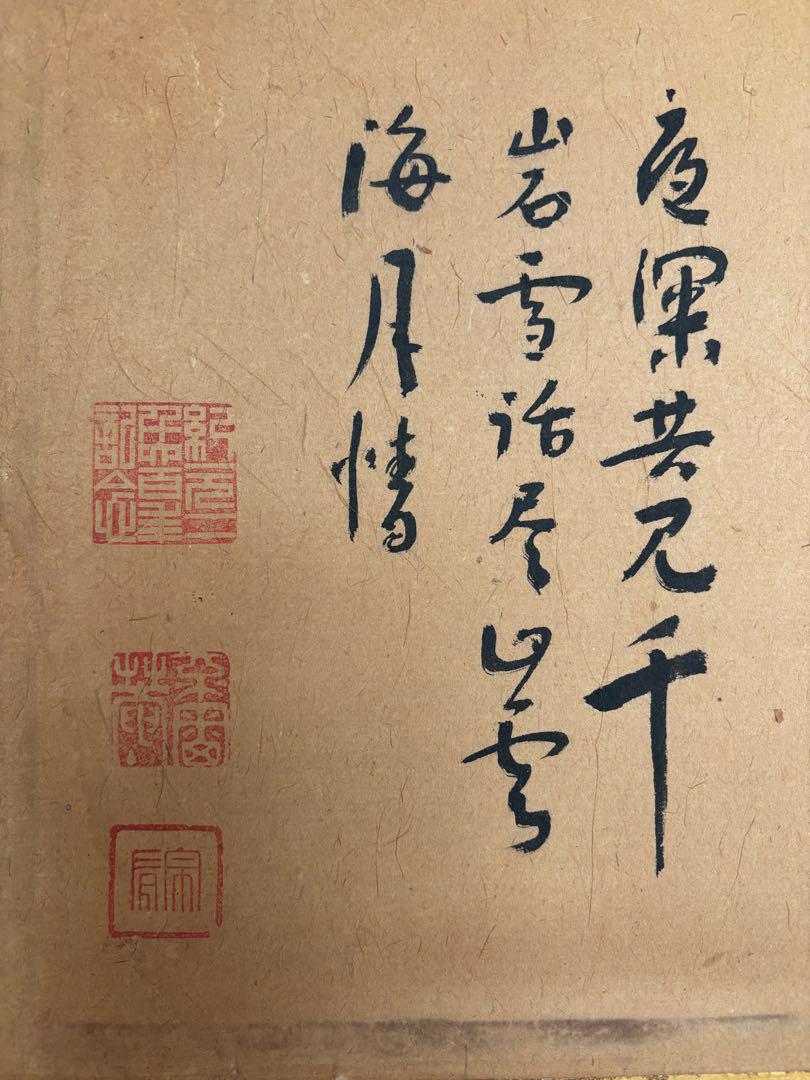 夜深共見千
岩雪話尽山雲
海月情